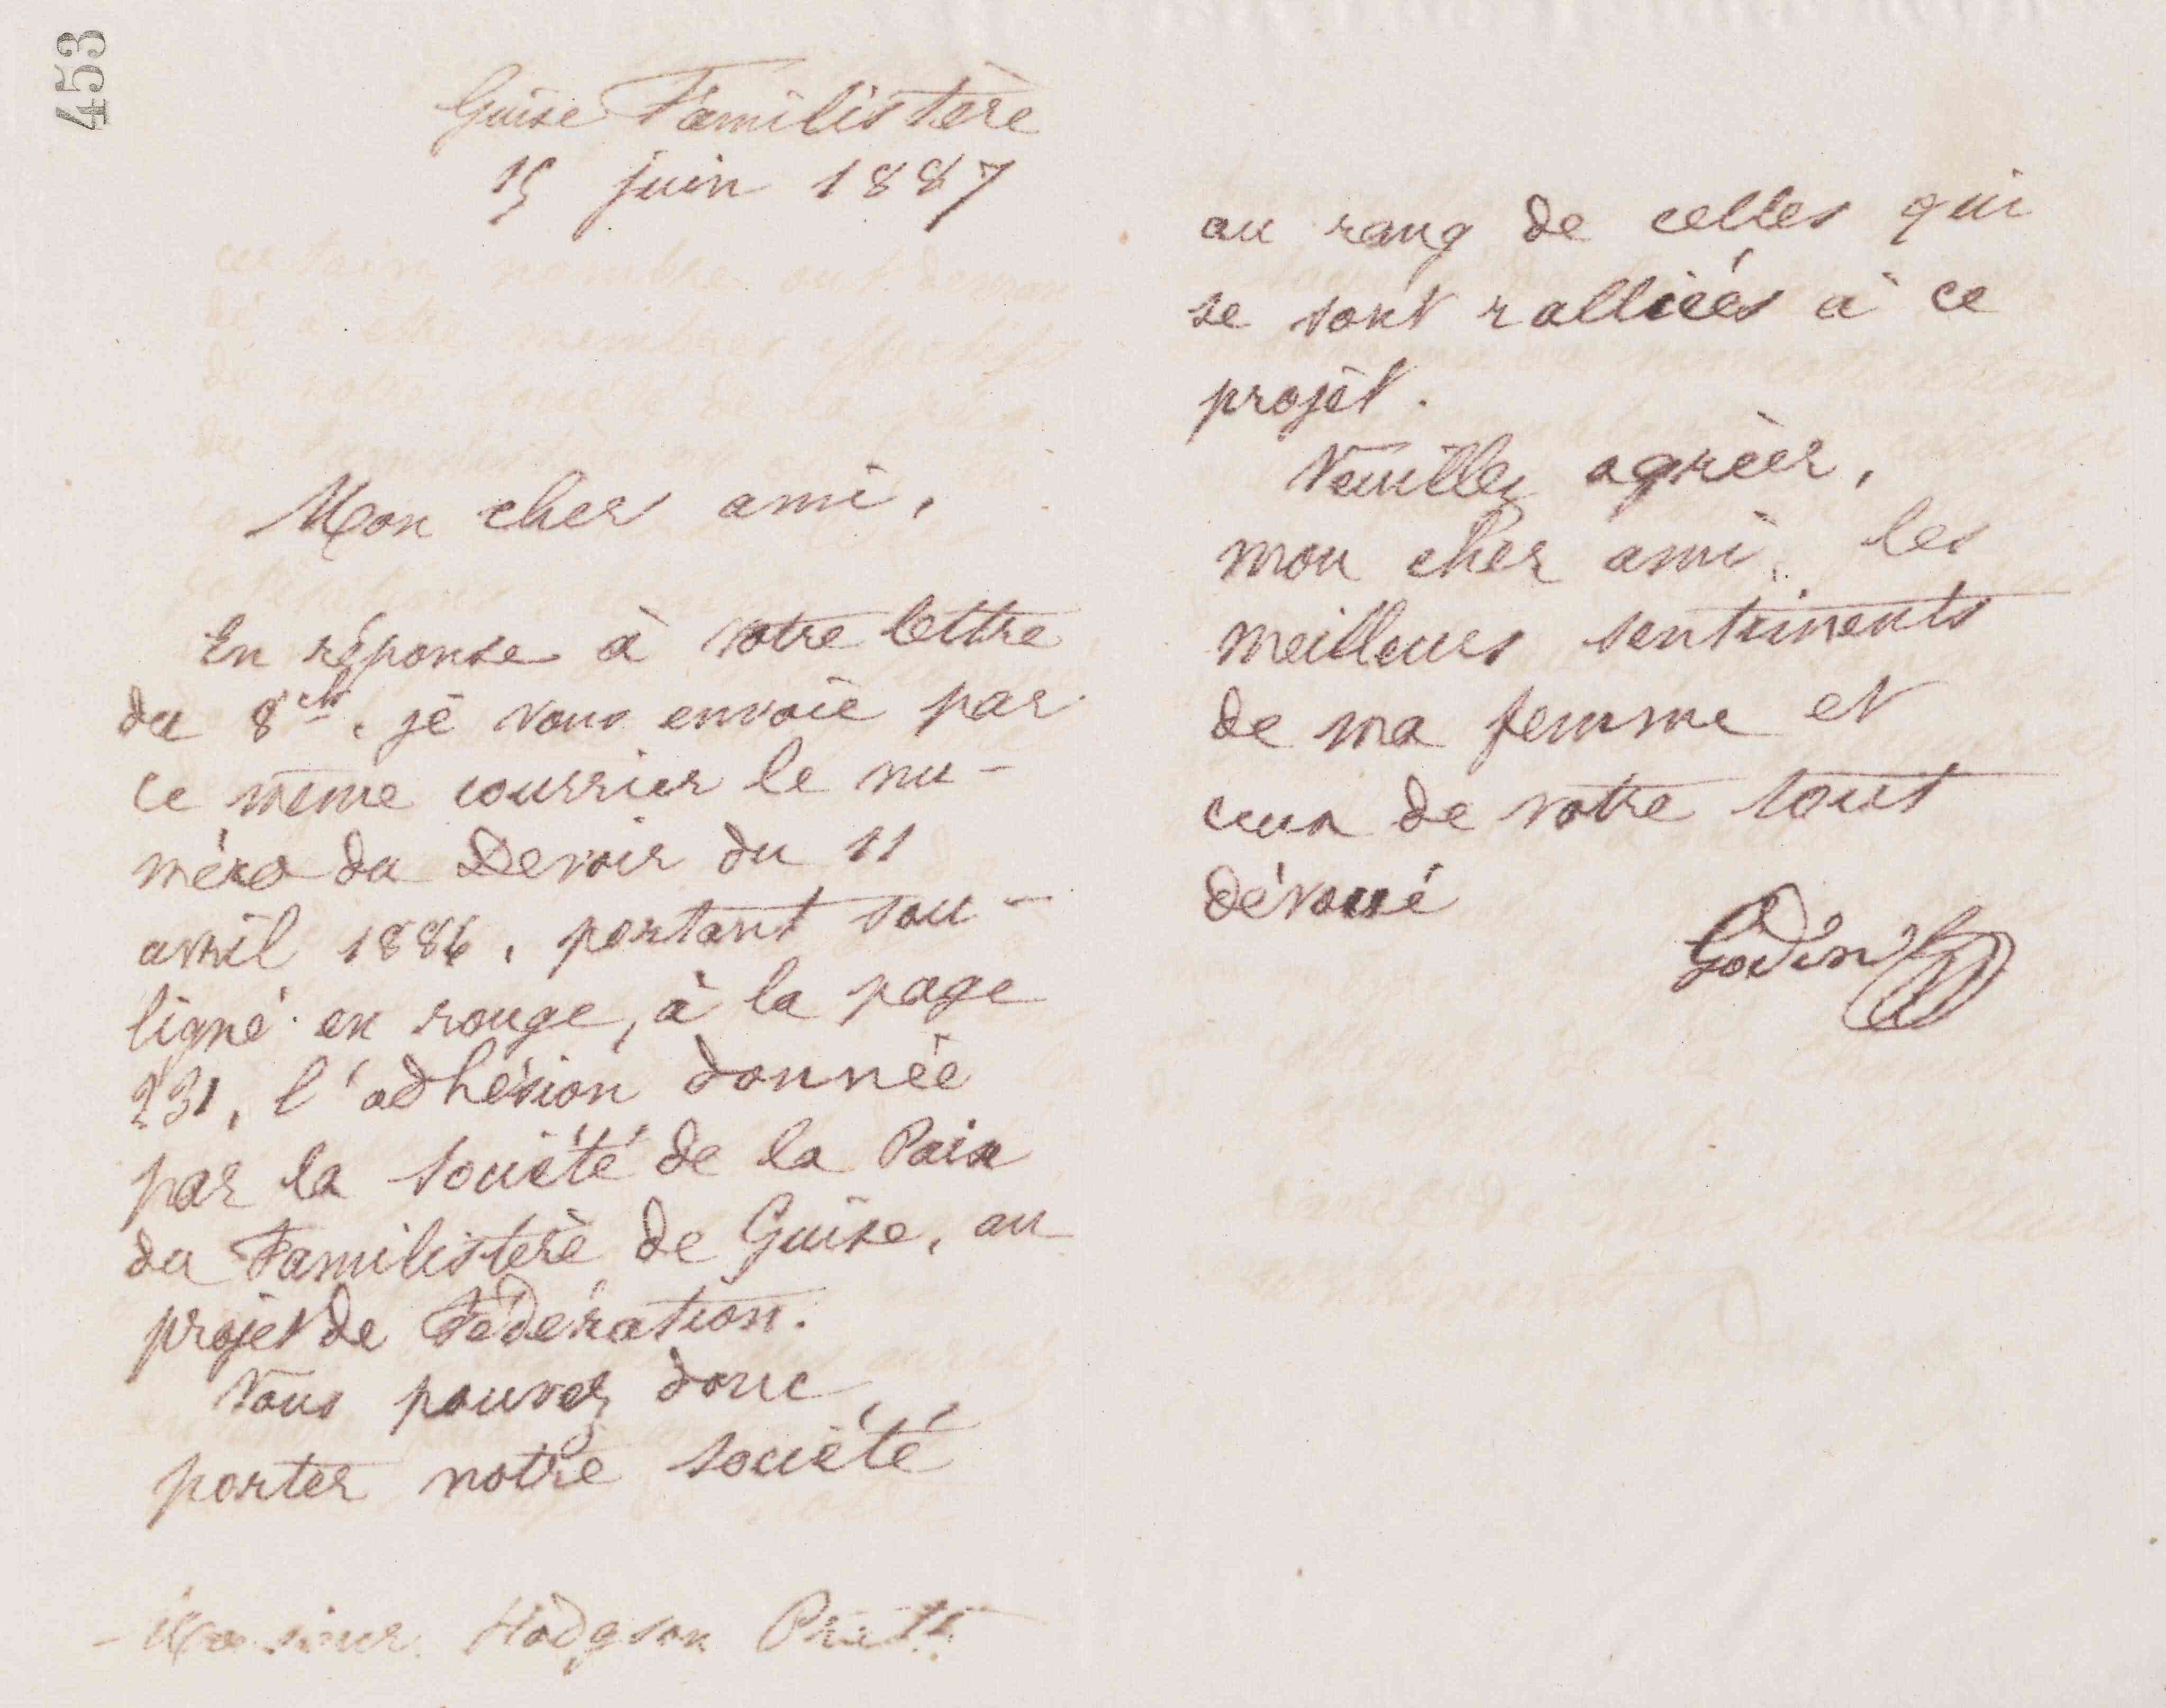 453
Guise Familistère
15 juin 1887
Mon cher ami,
En réponse à votre lettre
du 8 et, je vous envoie par
ce même courrier le nu-
méro du Devoir du 11
avril 1886, portant sou-
ligné en rouge, à la page
231, l'adhésion donnée
par la société de la Paix
du Familistère de Guise, au
projet de Fédération.
Vous pouvez donc
porter notre société
Monsieur Hodgson Pratt
au rang de celles qui
se sont ralliées à ce
projet.
Veuillez agréer,
mon cher ami, les
meilleurs sentiments
de ma femme et
ceux de votre tout
dévoué
Godin